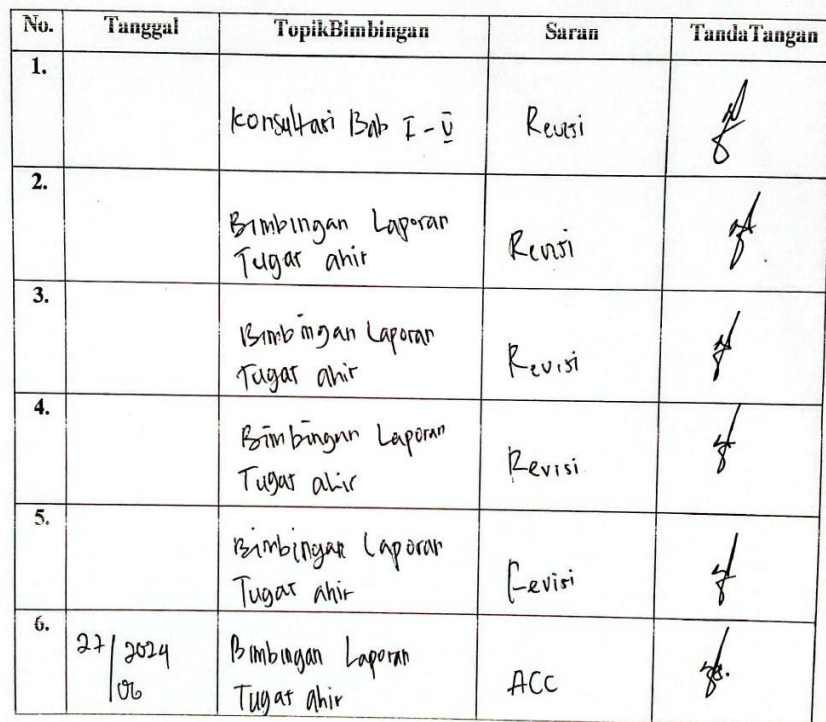 No. Tanggal TopikBimbingan Saran TandaTangan
1.
Konsultasi Bab I - V Revisi
2.
Bimbingan Laporan
Tugas ahir Revisi
3.
Bimbingan Laporan
Tugas ahir Revisi
4.
Bimbingan Laporan
Tugas ahir Revisi
5.
Bimbingan Laporan
Tugas ahir Revisi
6.
27/2024 Bimbingan Laporan
/06 Tugas ahir ACC